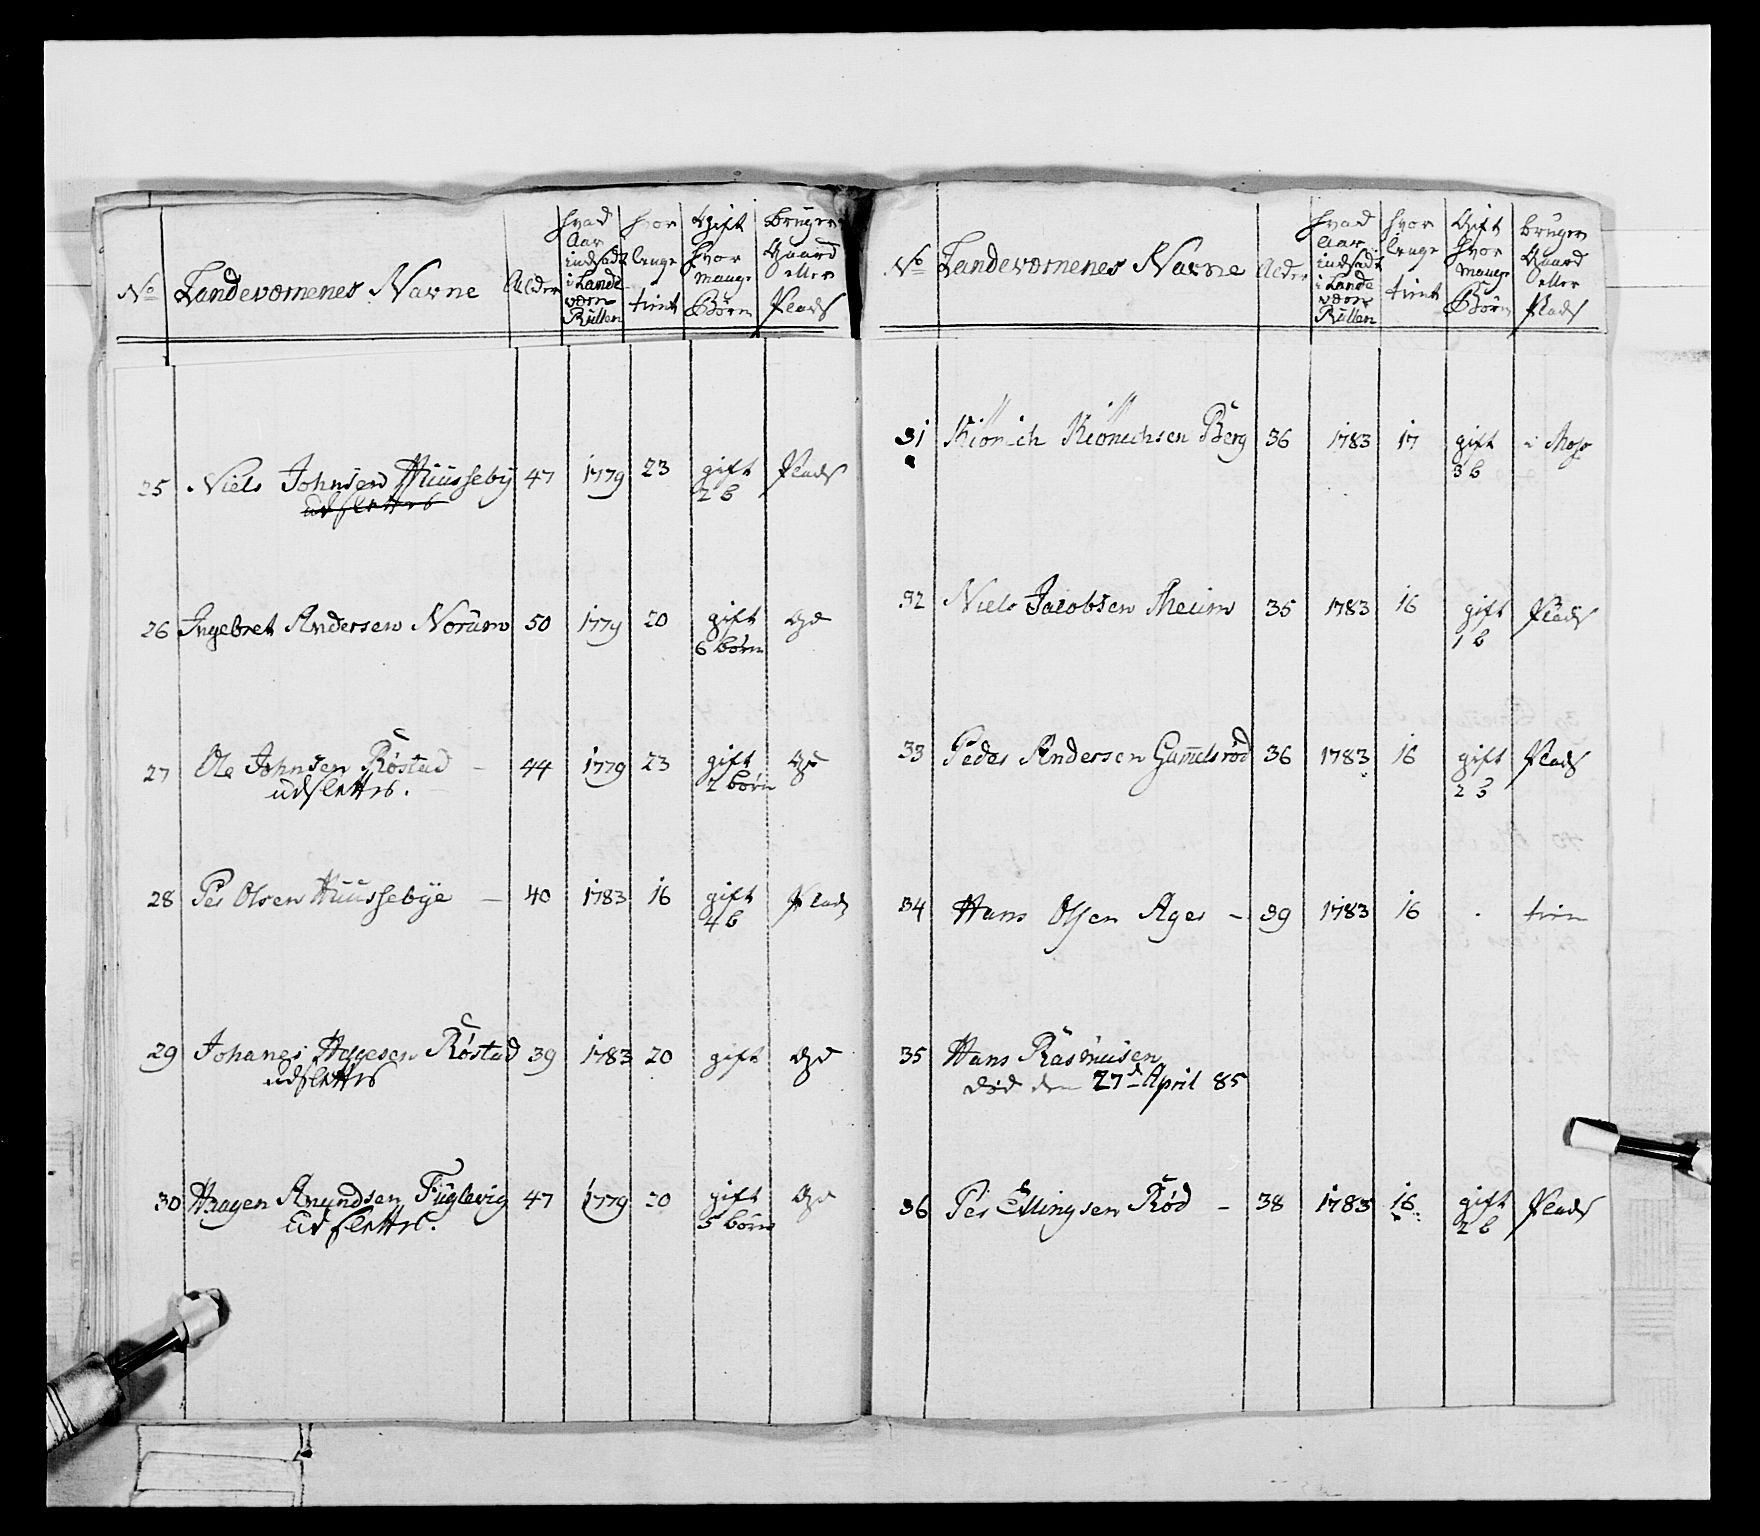 No Landeværnenes Navne Alder hvad Aar indsadt i Landeværn Rullen hvor lenge tient Gift hvor mange Børn bruger Gaard eller Plads
25 Niels Johnsen Huusseby 47 1779 23 gift Plads
udslettes 2 b
26 Ingebret Andersen Norum 50 1779 20 gift Gd
6 børn
27 Ole Johnsen Røstad - 44 1779 23 gift Gd
udslettes. 2 børn
28 Per Olsen Huussebye - 40 1783 16 gift Plads
4 b
29 Johanes Aagesen Røstad 39 1783 20 gift Gd
udslettes
30 Haagen Amundsen Fuglevig 47 1779 20 gift Gd
udslettes. 5 børn
No Landeværnenes Navne Alder hvad Aar indsadt i Lande værn Rullen hvor lenge tient Gift hvor mange Børn bruger Gaard eller Plads
31 Berg 36 1783 17 gift i Moss
3 b
32 Niels Jacobsen 35 1783 16 gift Plads
1 b
33 Peder Andersen Gamelsrød 36 1783 16 gift Plads
2 b
34 Hans Olsen Ager - 39 1783 16 . tien
35 Hans Rasmusen
død den 27d April 85
36 Per Ellingsen Rød - 38 1783 16 gift Plads
2 b